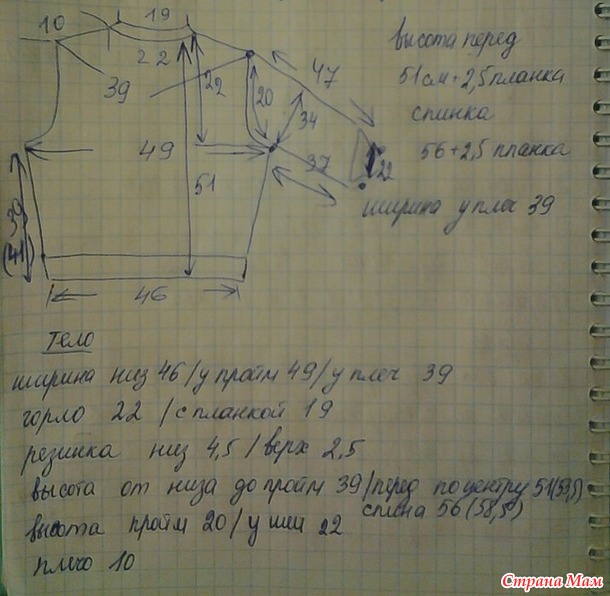 10
19
22
39
22
20
47
34
49
37
22
51
39
46
высота перед
51см + 2,5 планка
спинка
56 + 2,5 планка
ширина у плеч 39
Тело
ширина низ 46 / у пройм 49 / у плеч 39
горло 22 / с планкой 19
резинка низ 4,5 / верх 2,5
высота от низа до пройм 39 / перед по центру 51 (53,5)
спина 56 (58,5)
высота пройм 20 / у шеи 22
плечо 10
Страна Мам